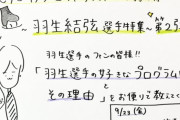 〜羽生結弦選手特集〜第2弾
羽生選手のファンの皆様!!
「羽生選手の好きなプログラムと
その理由」をお便りで教えてく
9/23(金)